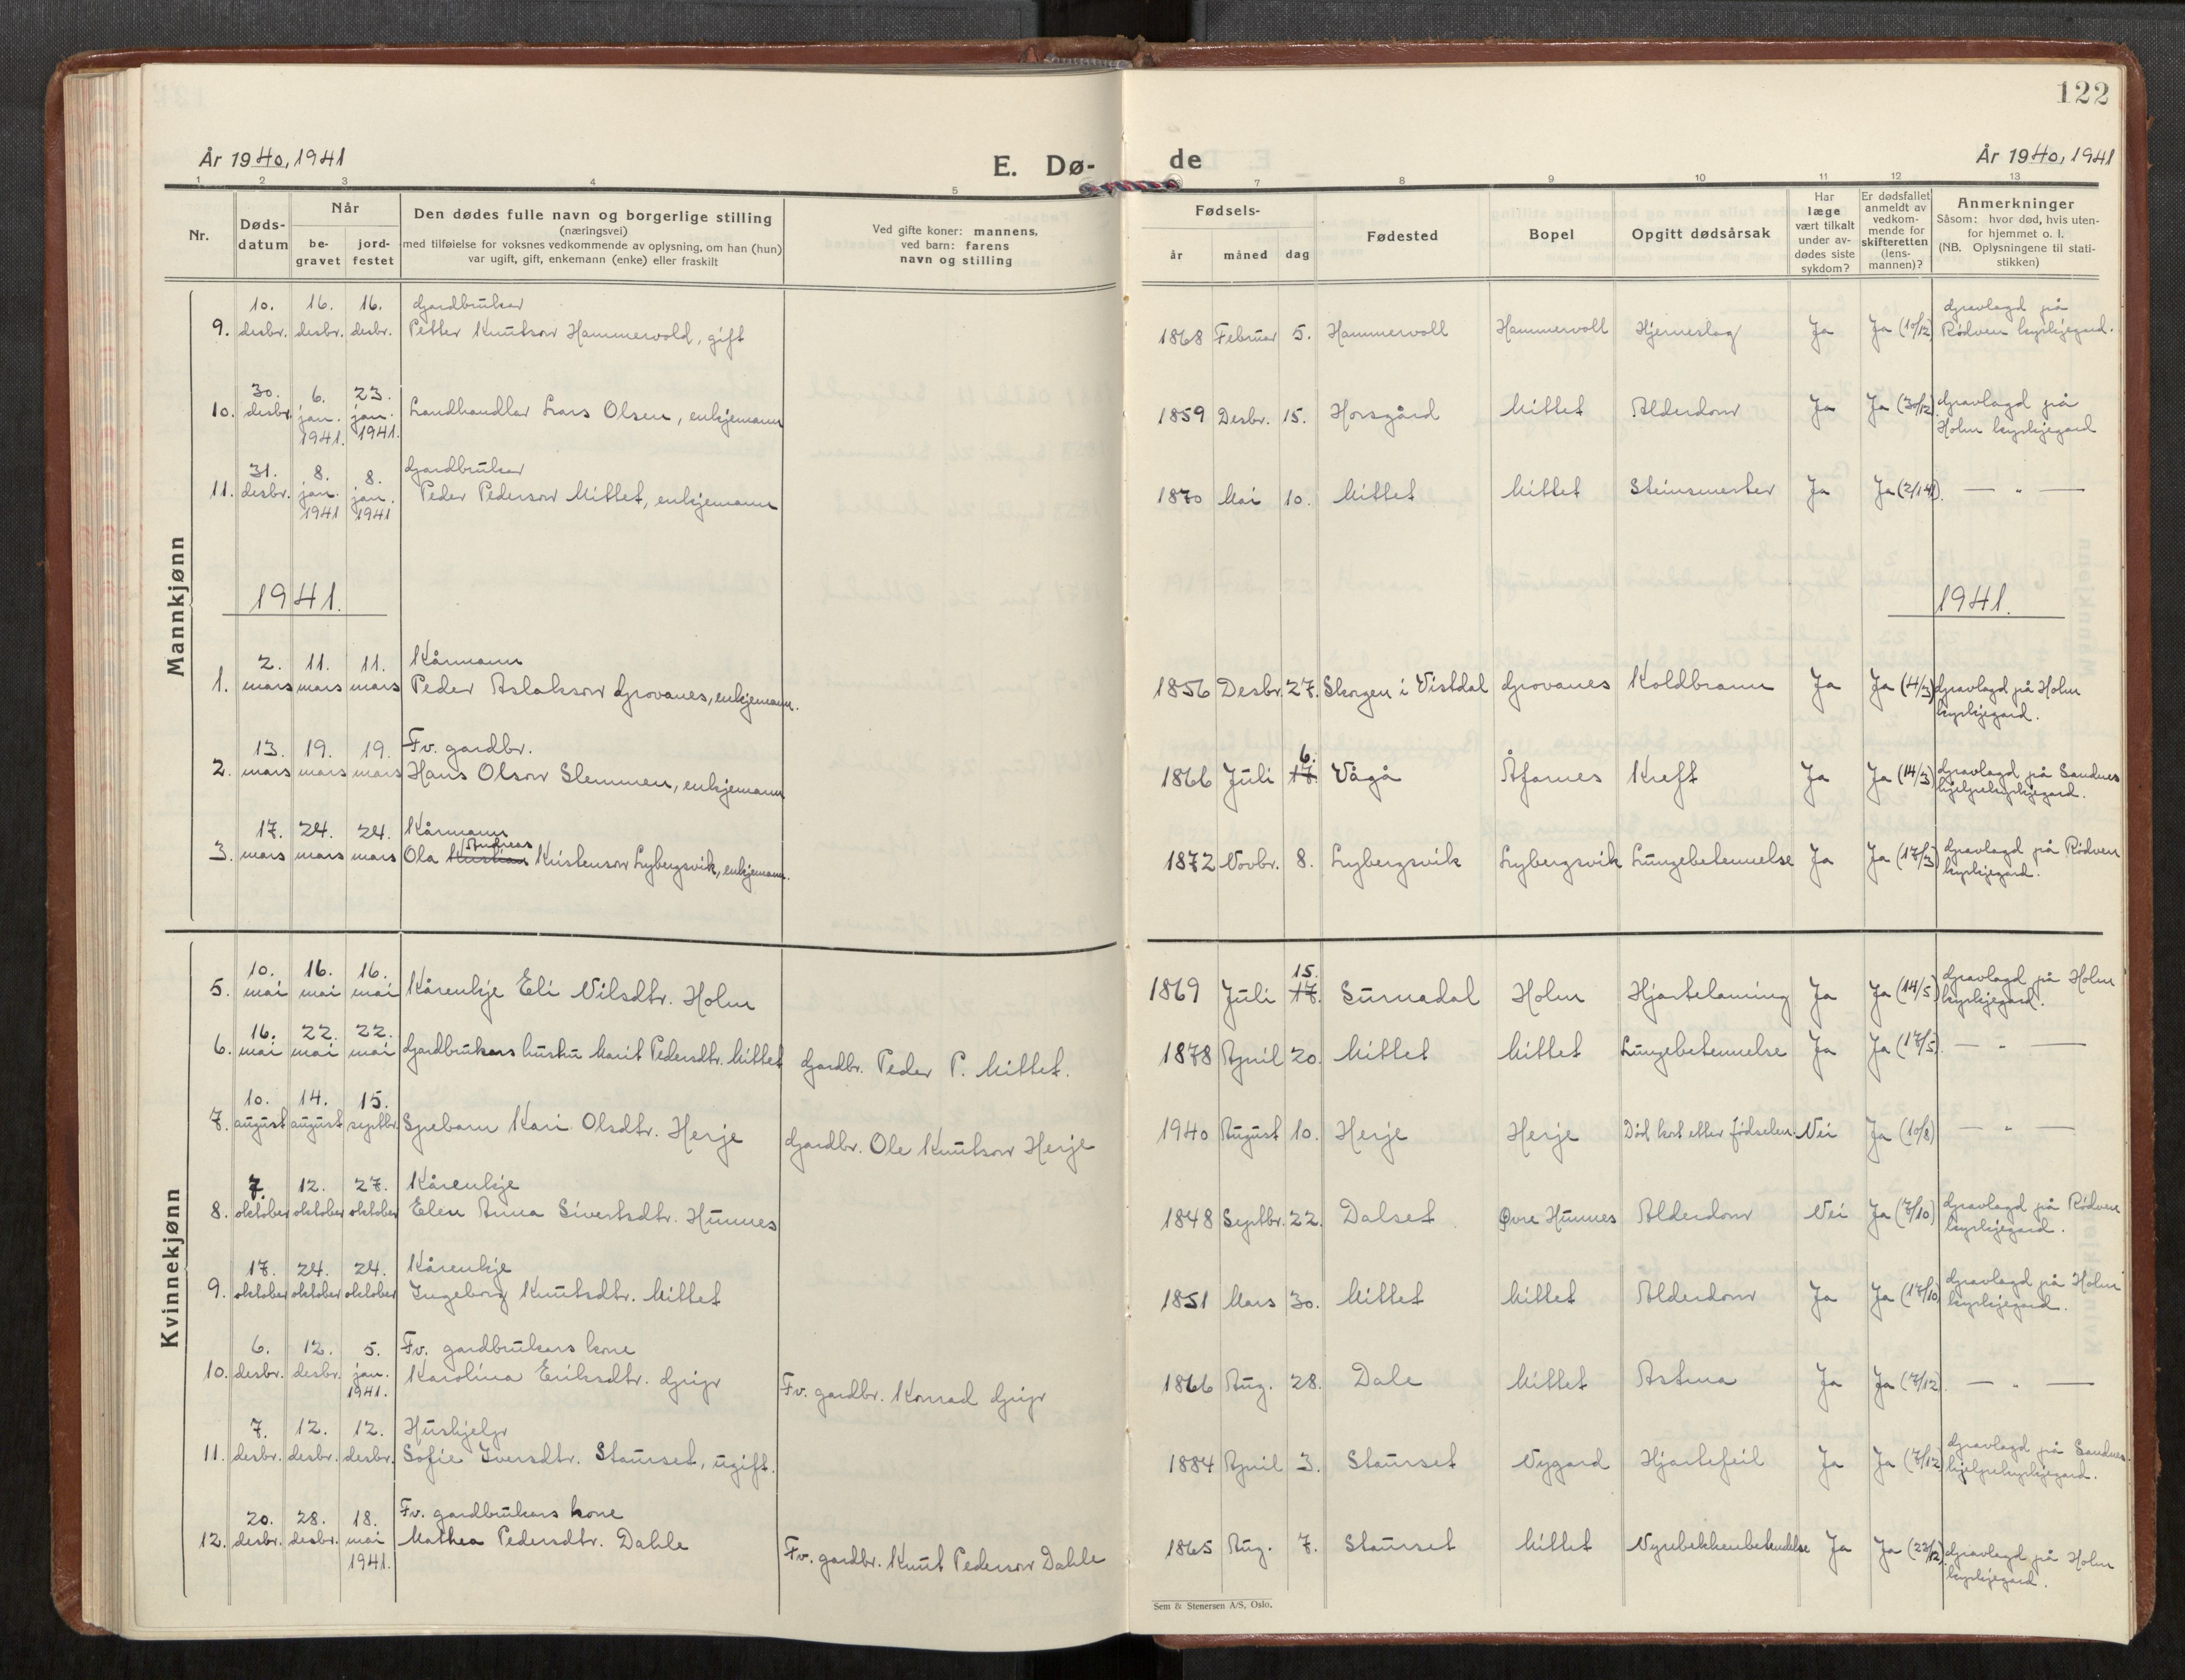 122
År 1940, 1941
E. Dø-
de
År 1940, 1941
1 2 3 4 5 7 8 9 10 11 12 13
Nr.
Døds-
datum
Når
be-
gravet
jord-
festet
Den dødes fulle navn og borgerlige stilling
(næringsvei)
med tilføielse for voksnes vedkommende av oplysning, om han (hun)
var ugift, gift, enkemann (enke) eller fraskilt
Ved gifte koner: mannens,
ved barn: farens
navn og stilling
Fødsels-
år måned dag
Fødested
Bopel
Opgitt dødsårsak
Har
læge
vært tilkalt
under av-
dødes siste
sykdom?
Er dødsfallet
anmeldt av
vedkom-
mende for
skifteretten
(lens-
mannen)?
Anmerkninger
Såsom: hvor død, hvis uten-
for hjemmet o. l.
(NB. Oplysningene til stati-
stikken)
Mannkjønn
10. 16. 16. Gardbrukar
9. desbr. desbr. desbr. Petter Knutson Hammervold, gift
1868 Februar 5. Hammervoll Hammervoll Hjerneslag Ja Ja (10/12)
Gravlagd på
Rødven kyrkjegard.
30. 6. 23.
10. desbr. jan. jan. Landhandlar Lars Olsen, enkjemann
1941. 1941.
1859 Desbr. 15. Horsgård Mittet Alderdom Ja Ja (30/12)
Gravlagd på
Holm kyrkjegard
31. 8. 8. Gardbrukar
11. desbr. jan. jan. Peder Pederson Mittet, enkjemann
1941 1941
1870 Mai 10. Mittet Mittet Steinsmerter Ja Ja (2/1 41). — " —
1941.
1941.
2. 11. 11. Kårmann
1. mars mars mars Peder Aslakson Grovanes, enkjemann.
1856 Desbr. 27. Skorgen i Vistdal Grovanes Koldbrann Ja Ja (4/3)
Gravlagd på Holm
kyrkjegard.
13. 19. 19. Fv. gardbr.
2. mars mars mars Hans Olson Slemmen, enkjemann
6.
1866 Juli 17. Vågå Åfarnes Kreft Ja Ja (14/3)
Gravlagd på Sandnes
hjelpekyrkjegard.
17. 24. 24. Kårmann
Andreas
3. mars mars mars Ola Kristian Kristenson Lybergsvik, enkjemann.
1872 Novbr. 8. Lybergsvik Lybergsvik Lungebetennelse Ja Ja (17/3)
Gravlagd på Rødven
kyrkjegard.
Kvinnekjønn
10. 16. 16.
5. mai mai mai Kårenkje Eli Nilsdtr. Holm
15.
1869 Juli 17. Surnadal Holm Hjartelaming Ja Ja (14/5)
Gravlagd på Holm
kyrkjegard.
16. 22. 22.
6. mai mai mai Gardbrukars hustru Marit Pedersdtr. Mittet Gardbr. Peder P. Mittet.
1878 April 20. Mittet Mittet Lungebetennelse Ja Ja (17/5) — " —
10. 14. 15.
7. august august septbr. Spebarn Kari Olsdtr. Herje Gardbr. Ole Knutson Herje
1940 August 10. Herje Herje Död kort etter födselen. Nei Ja (10/8) — " —
7. 12. 27. Kårenkje
8. oktober oktober oktober Elen Anna Sivertsdtr. Hunnes
1848 Septbr. 22. Dalset Øvre Hunnes Alderdom Nei Ja (7/10)
Gravlagd på Rødven
kyrkjegard.
17. 24. 24. Kårenkje
9. oktober oktober oktober Ingeborg Knutsdtr. Mittet
1851 Mars 30. Mittet Mittet Alderdom Ja Ja (17/10)
Gravlagd på Holm
kyrkjegard.
6. 12. 5. Fv. gardbrukars kone
10. desbr. desbr. jan. Karolina Eriksdtr. Gujr Fv. gardbr. Konrad Gujr
1941.
1866 Aug. 28. Dale Mittet Astma Ja Ja (7/12). — " —
7. 12. 12. Hushjelp
11. desbr. desbr. desbr. Sofie Iversdtr. Staurset, ugift.
1884 April 3. Staurset Nygard Hjartefeil Ja Ja (7/12)
Gravlagd på Sandnes
hjelpekyrkjegard.
20. 28. 18. Fv. gardbrukars kone
12. desbr. desbr. mai Mathea Pedersdtr. Dahle Fv. gardbr. Knut Pederson Dahle
1941.
1865 Aug. 7. Staurset Mittet Nyrebekkenbetendelse Ja Ja (22/12).
Gravlagd på Holm
kyrkjegard.
Sem & Stenersen A/S, Oslo.